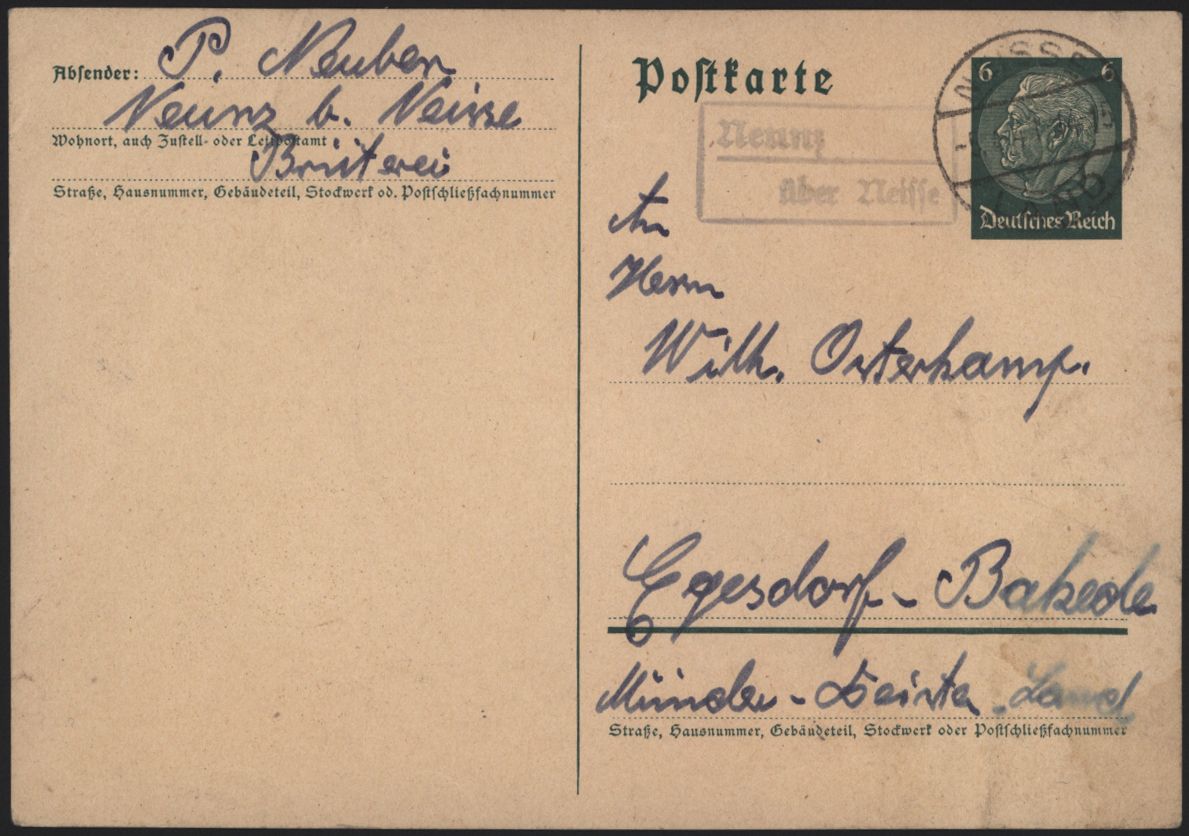 Absender: P. Neuber
Neunz b. Neisse
Wohnort, auch Zustell- oder Leitpostamt
Brüterei
Straße, Hausnummer, Gebäudeteil, Stockwerk od. Postschließfachnummer
Postkarte
6 6
Deutsches Reich
Neunz
über Neisse
An
Herrn
Wilh. Osterkamp.
Egesdorf - Bakede
Münder - Deister - Land
Straße, Hausnummer, Gebäudeteil, Stockwerk oder Postschließfachnummer